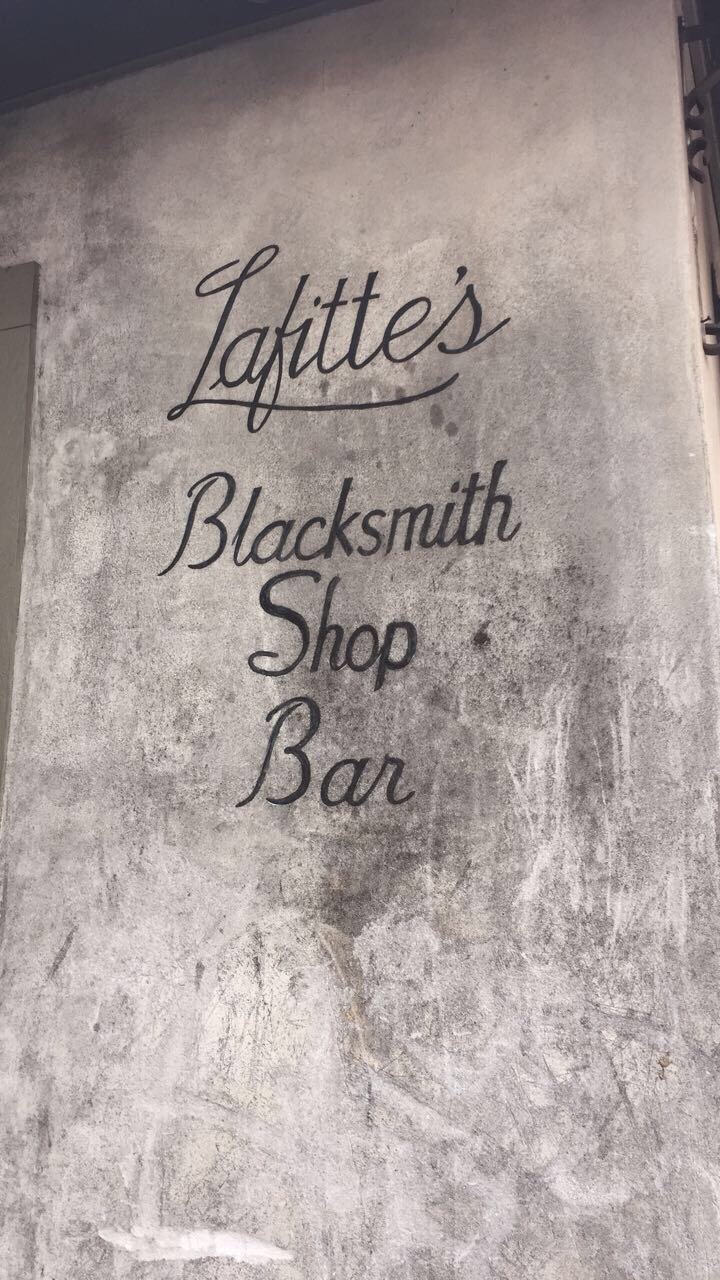 Lafitte's
Blacksmith
Shop
Bar